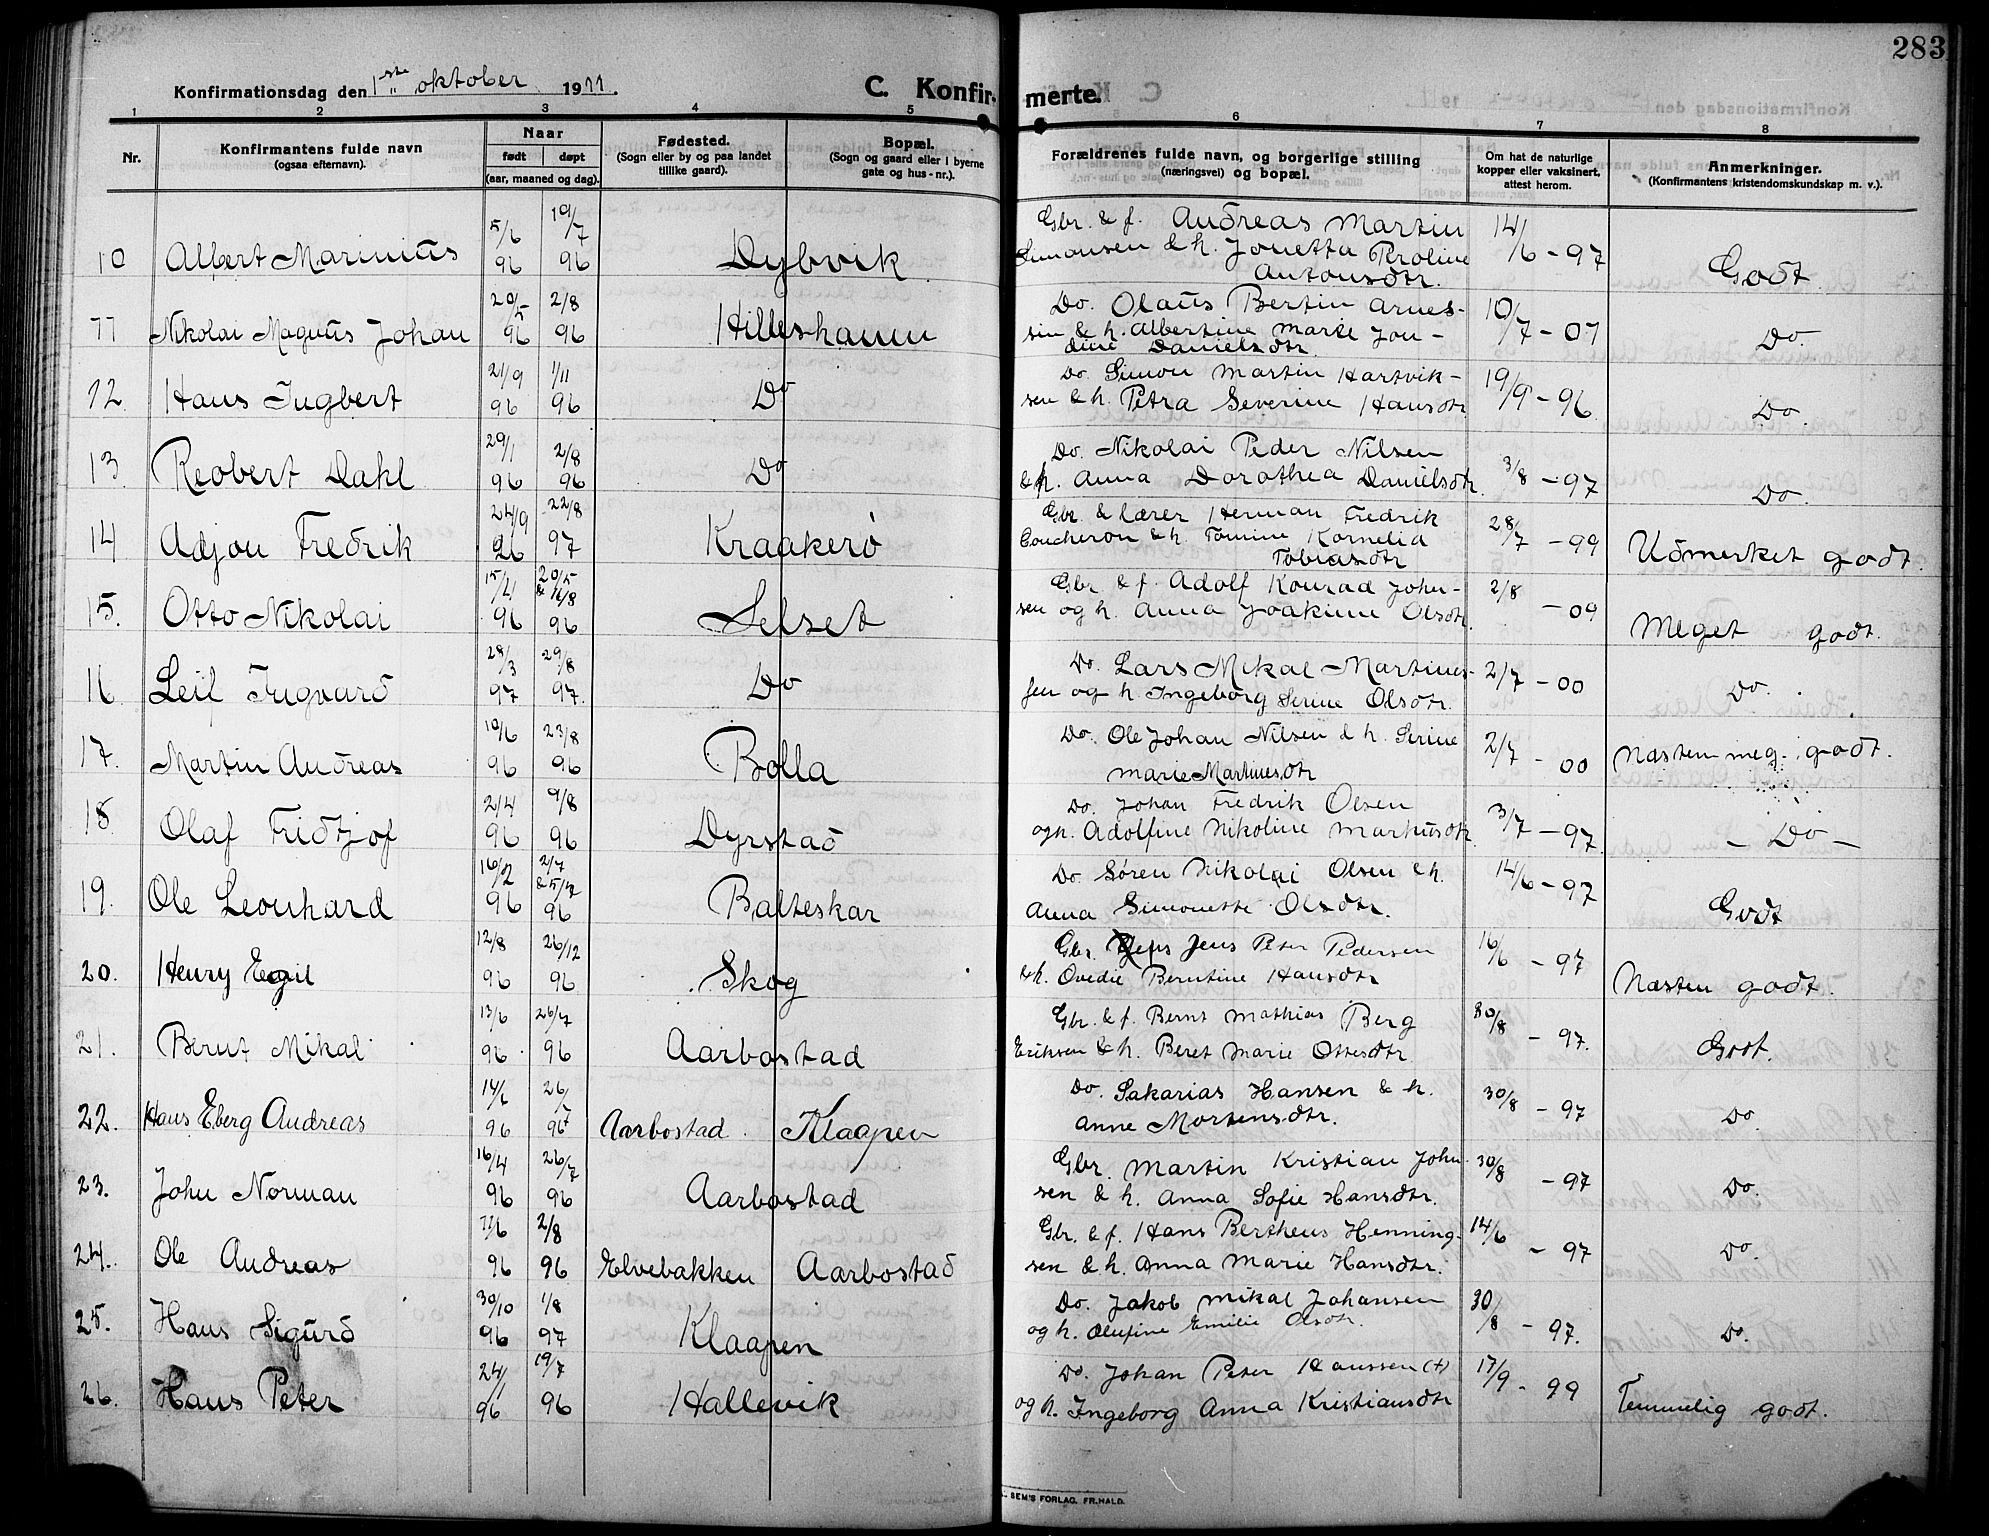 283
Konfirmationsdag den 1ste oktober 1911.
C. Konfirmerte.
1 2 3 4 5 6 7 8
Nr.
Konfirmantens fulde navn
(ogsaa efternavn).
Naar
født døpt
(aar, maaned og dag).
Fødested.
(Sogn eller by og paa landet
tillike gaard).
Bopæl.
(Sogn og gaard eller i byerne
gate og hus-nr.).
Forældrenes fulde navn, og borgerlige stilling
(næringsvei) og bopæl.
Om hat de naturlige
kopper eller vaksinert,
attest herom.
Anmerkninger.
(Konfirmantens kristendomskundskap m. v.).
10 Albert Marinius 5/6 96 19/7 96 Dybvik
Gbr. & f. Andreas Martin
Simonsen & h. Jonetta Proline
Antonsdtr.
14/6 - 97 Godt
11 Nikolai Magnus Johan 20/5 96 2/8 96 Hilleshamn
Do. Olaus Bertin Arnes-
sen & h. Albertine Marie Jon-
dine Danielsdtr.
10/7 - 07 Do.
12. Hans Ingbert 21/9 96 1/11 96 Do
Do. Simon Martin Hartvik-
sen & h. Petra Severine Hansdtr
19/9 - 96 Do
13 Reobert Dahl 29/1 96 2/8 96 Do
Do. Nikolai Peder Nilsen
& h. Anna Dorothea Danielsdtr.
3/8 - 97 Do
14 Adjon Fredrik 24/9 96 22/8 97 Kraakerø
Gbr. & lærer Herman Fredrik
Coucheron & h. Tomine Kornelia
Tobiasdtr
28/7 - 99 Udmerket godt.
15. Otto Nikolai 15/4 96 20/5 & 16/8 96 Selset
Gbr & f. Adolf Konrad John-
sen og h. Anna Joakime Olsdtr.
2/8 - 09 Meget godt.
16 Leif Ingvard 28/3 97 29/8 97. Do
Do. Lars Mikal Martines-
sen og h. Ingeborg Serine Olsdtr.
2/7 - 00 Do.
17. Martin Andreas 10/6 96 23/8 96 Bolla
Do. Ole Johan Nilsen & h. Serine
Marie Martinesdtr
2/7 - 00 Næsten meg. godt.
18. Olaf Fridtjof 2/4 96 9/8 96 Dyrstad
Do. Johan Fredrik Olsen
og h. Adolfine Nikoline Markusdtr
3/7 - 97. - Do -
19. Ole Leonhard 16/2 96 2/7 & 5/12 96 Balteskar
Do. Søren Nikolai Olsen & h.
Anna Simonette Olsdtr.
14/6 - 97 Godt
20. Henry Egil 12/8 96 26/12 96 Skog
Gbr. Jens Peter Pedersen
& h. Ovedie Berntine Hansdtr
16/6 - 97 Næsten godt.
21. Bernt Mikal 13/6 96 26/7 96 Aarbostad
Gbr. & f. Bernt Mathias Berg
Eriksen & h. Beret Marie Ottesdtr.
30/8 - 97. Godt.
22. Hans Eberg Andreas 14/6 96 26/7 96 Aarbostad. Klaapen
Do. Sakarias Hansen & h.
Anne Mortensdtr.
30/8 - 97 Do
23. John Norman 16/4 96 26/7 96 Aarbostad
Gbr. Martin Kristian John-
sen & h. Anna Sofie Hansdtr.
30/8 - 97 Do.
24. Ole Andreas 11/6 96 2/8 96 Elvebakken Aarbostad
Gbr. & f. Hans Bertheus Henning-
sen & h. Anna Marie Hansdtr.
14/6 - 97 Do.
25. Hans Sigurd 30/10 96 1/8 97 Klaapen
Do. Jakob Mikal Johansen
og h. Olufine Emilie Olsdtr.
30/8 - 97. Do.
26. Hans Peter 24/1 96 19/7 96 Hallevik
Do. Johan Peter Hanssen (+)
og h. Ingeborg Anna Kristiansdtr
17/9 - 99 Temmelig godt.
SEM'S FORLAG. FR.HALD.